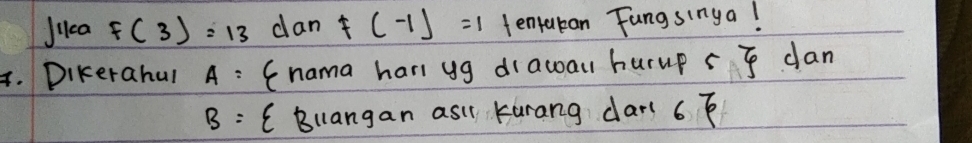 Jika f(3) = 13 dan f(-1) = 1 tentukan Fungsinya!
7. Diketahui A = { nama hari yg diawali hurup s } dan
B = { Bilangan asli kurang dari 6 }